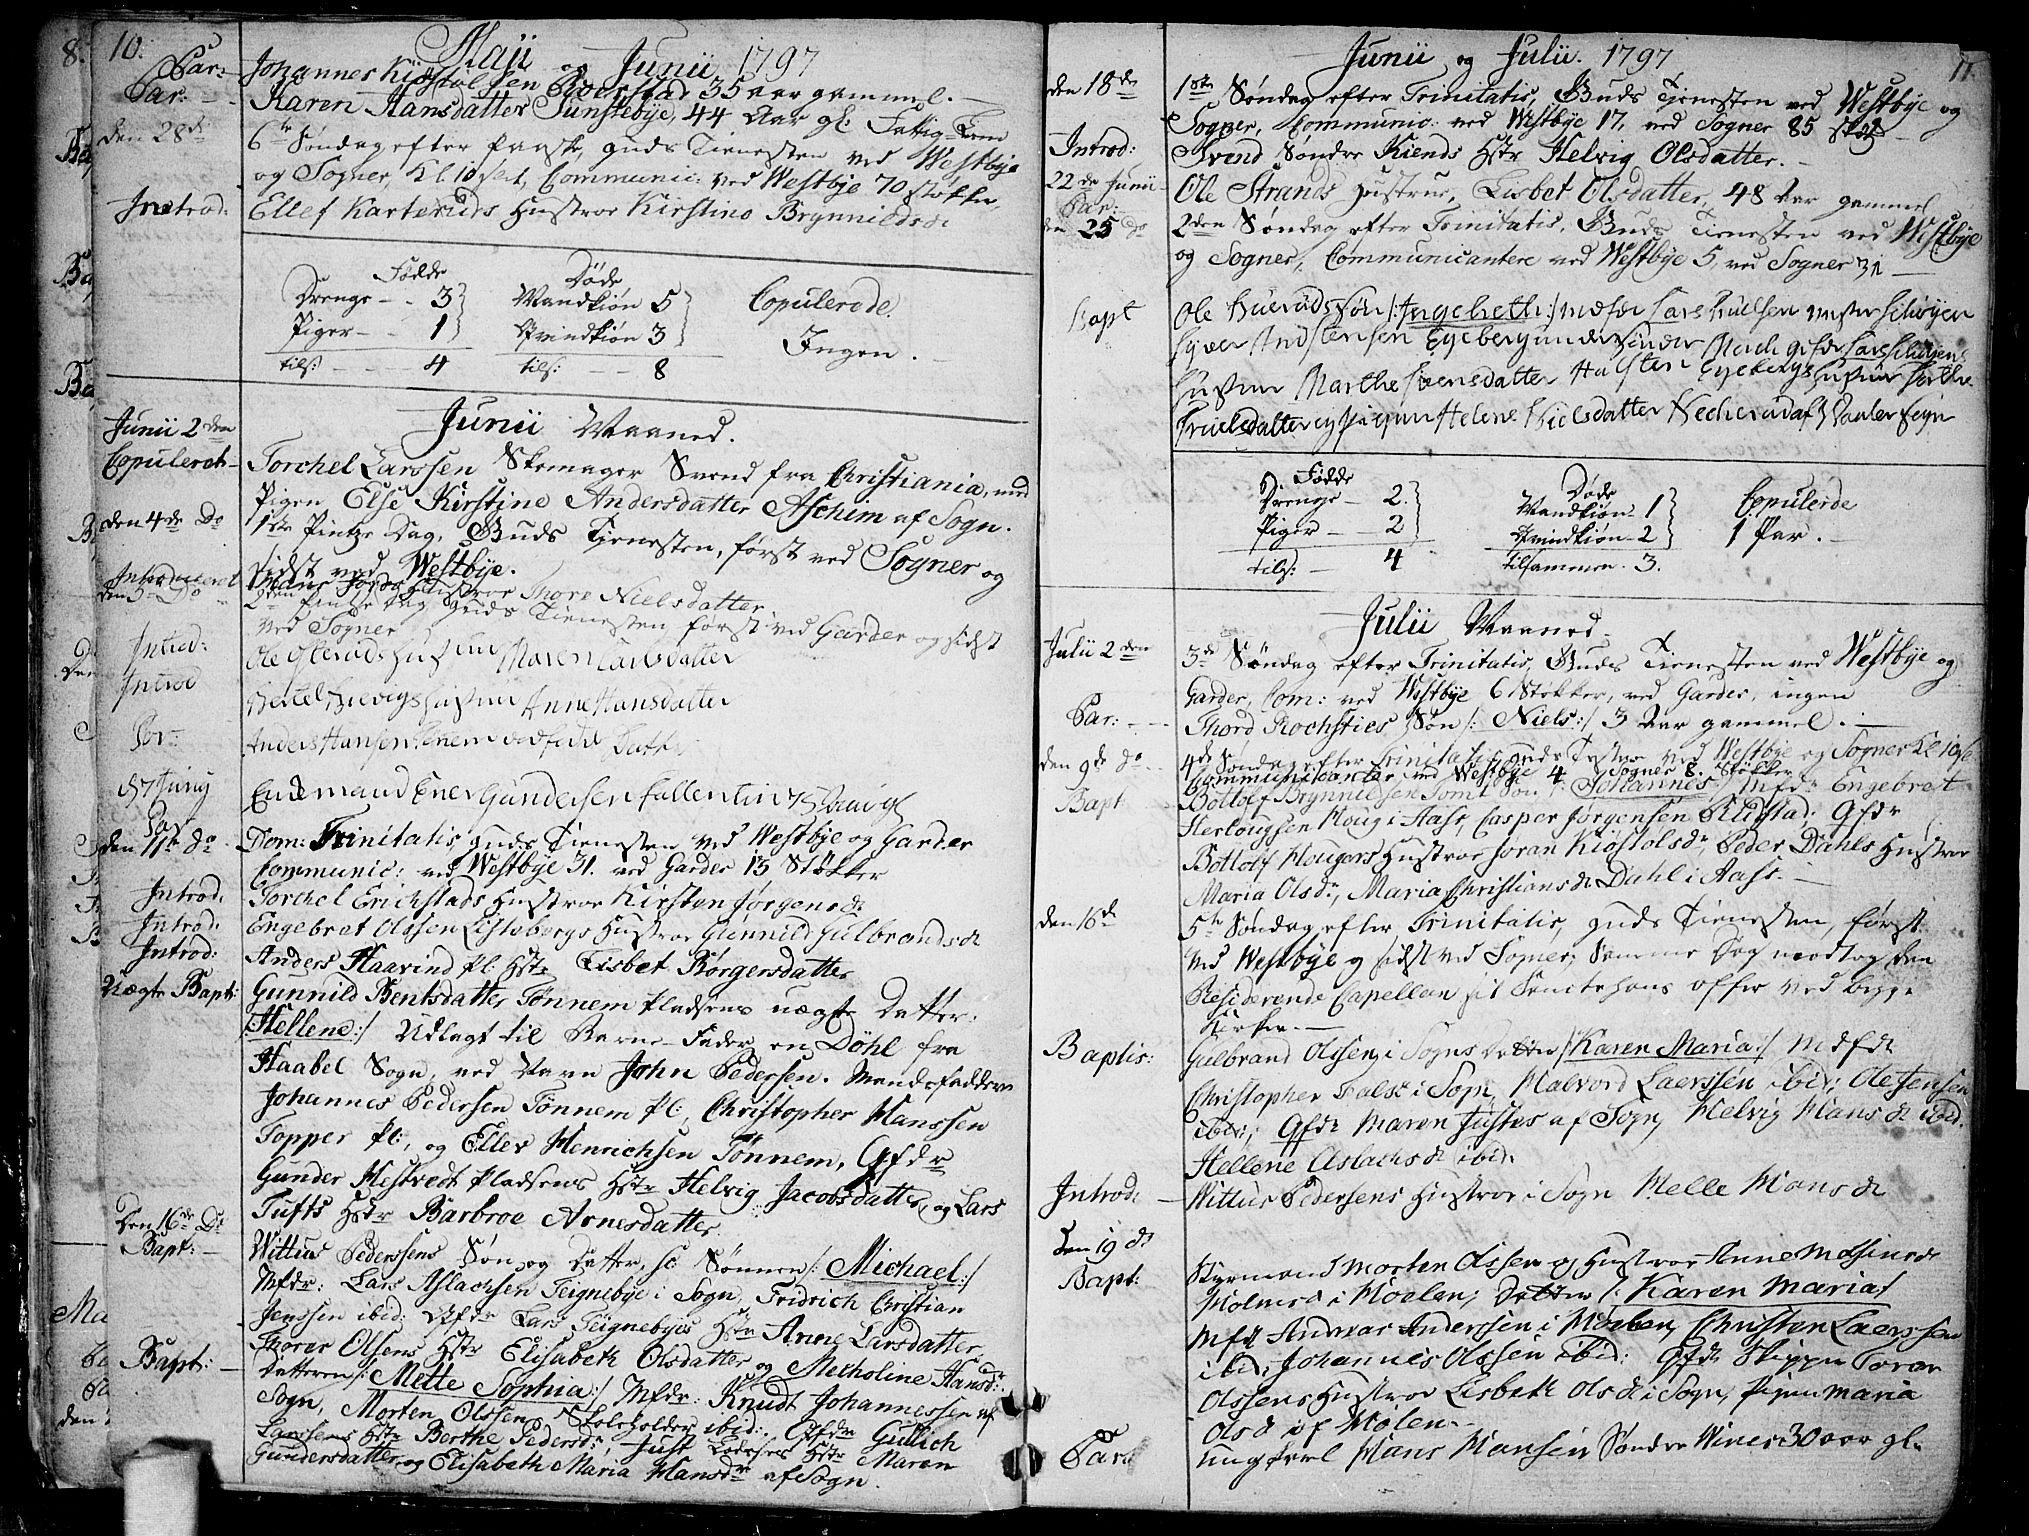 10.
Maii og Junii 1797
Par: Johannes Kiøstolsen Roerstad 35 aar gammel.
Par: Karen Hansdatter Sunstebye, 44 Aar gl. Fattig-Lem
den 28de 6te Søndag efter Paaske, Guds Tienesten ved Westbye
og Sogner, Kl. 10 slet, Communic: ved Westbye 70 støkke
Introd: Ellef Karteruds Hustroe Kirstine Brynnildsdr
Fødde Døde
Drenge - - 3 Mandkiøn 5 Copulerede.
Piger - - 1 Qvindkiøn 3 Ingen.
tils: - - - 4 tils: - - 8
Junii Maaned.
Junii 2den
Copuleret Torchel Larssen Skomager Svend fra Christiania, med
Pigen Else Kirstine Andersdatter Aschim af Sogn.
den 4de Do 1ste Pintze Dag, Guds Tjenesten, først ved Sogner og
sidst ved Westbye.
Introduceret Hans Hustroe Thore Nielsdatter
den 5te Do 2den Pintze Dag Guds Tienesten først ved Garder og sidst
ved Sogner
Introd: Ole Hustrue Maren Larsdatter
Introd Bertel Hustrue Anne Hansdatter
Anders Hansen
d 7 Junij
Par Enkemand Ener Gundersen 75 aar gl
den 11te do Dom: Trinitatis, Guds Tienesten ved Westbye og Garder
Communic: ved Westbye 31. ved Garder 13 Støkker
Introd: Torchel Erichstads Hustroe Kirsten Jørgensdr
Introd: Engebret Olssen Listebergs Hustroe Gunnild Gulbrandsdr
Introd: Anders Haavind Pl: Hstr Lisbet Børgersdatter
Uægte Bapt: Gunnild Bentsdatter Tønnem Pladsens uægte Datter.
/:Hellene:/ Udlagt til Barne-Fader en Döhl fra
Haabel Sogn, ved Navn John Pedersen. Mandsfaddere
Johannes Pedersen Tønnem Pl:, Christopher Hanssen
Topper Pl:, og Eller Henrichsen Tønnem, Qfdr
Gunder Hestvedt Pladsens Hstr Helvig Jacobsdatter, og Lars
Tufts Hstr Barbroe Arnesdatter.
Den 16de Do
Bapt: Wittus Pederssens Søn og Datter, so Sønnen /: Michael :/
Mfdr: Lars Aslachsen Teignebye i Sogn, Fridrich Christian
Jenssen ibid: Qfdr Lars Teignebyes Hstr Anne Larsdatter,
Thorer Olsens Hstr Elisabeth Olsdatter og Metholine Hansdr:
Bapt: Datteren /: Mette Sophia :/ Mfdr: Knudt Johannessen af
Sogn, Morten Olssen, Skoleholder ibid:, Qfdr Gullich
Larssens Hstr Berthe Pedersdr, Just Hstr Maren
Gundersdatter og Elisabeth Maria Hansdr af Sogn.
Junii og Julii. 1797
11.
den 18de 1ste Søndag efter Trinitatis, Guds Tjenesten ved Westbye og
Sogner, Communic: ved Westbye 17, ved Sogner 85 støk
Introd: Svend Søndre Kiends Hstr Helvig Olsdatter.
22de Junii
Par: Ole Strands Hustrue, Lisbet Olsdatter, 48 Aar gammel
den 25 do 2den Søndag efter Trinitatis, Guds Tienesten ved Westbye
og Sogner, Communicantere ved Westbye 5, ved Sogner 31
Bapt Ole Hueruds Søn /: Ingebreth :/ Mdfdr Lars
Gunder
Hustrue Marthe Svensdatter Halsten Eyebergs Hustrue
Truelsdatter og Pigen Helene Nielsdatter
Fødde Døde
Drenge - 2. Mandkiøn - 1 Copulerede
Piger - - 2 Qvindkiøn - 2 1 Par.
tils: - 4 tilsammen. 3.
Julii Maaned.
Julii 2den 3de Søndag efter Trinitatis, Guds Tienesten ved Westbye og
Garder, Com: ved Westbye 6 Støkker, ved Garder, ingen
Par: - - Thord Rochsties Søn /: Niels :/ 3 Aar gammel.
den 9de do 4de Søndag efter Trinitatis, Guds Tiesten ved Westbye og Sogner Kl 10 s
Communicanter ved Westbye 4. Sogner 8. Støkker
Bapt: Bottolf Brynnildsen Tomt Søn /: Johannes :/ Mfdr Engebret
Herlougsen Houg i Aass, Casper Jørgensen Kildstad; Qfdr
Bottolf Hougers Hustroe Joran Kiøstolsdr, Peder Dahls Hustroe
Maria Olsdr, Maria Christiansdr Dahl i Aass.
den 16de 5te Søndag efter Trinitatis, Guds Tienesten, først
ved Westbye og sidst ved Sogner; Samme Dag modtog den
Residerende Capellan sit Hans offer ved begge
Kirker.
Baptis: Gulbrand Olssen i Sogns Datter /: Karen Maria :/ Mdfdr
Christopher Falk i Sogn, Halvord Laerssen ibid; Ole Jensen
ibid:; Qfdr Maren Justes af Sogn, Helvig Hansdr ibid.
Hellene Aslachsdr ibid:
Introd: Wittus Pedersens Hustroe i Sogn Helle Hansdr
Den 19 dr
Bapt: Styrmand Morten Olssen og Hustroe Anne
Holmes i Hoelen; Datter /: Karen Maria /
Mfdr Andreas Anderssen i Hoelen, Christen Laerssen
ibid: Johannes Olssen ibid: Qfdr Skipper Joran
Olssens Hustroe Lisbeth Olsdr i Sogn, Pigen Maria
Olsd af Hølen.
Par Ungkarl Hans Hansen Søndre Wines 30 aar gl.